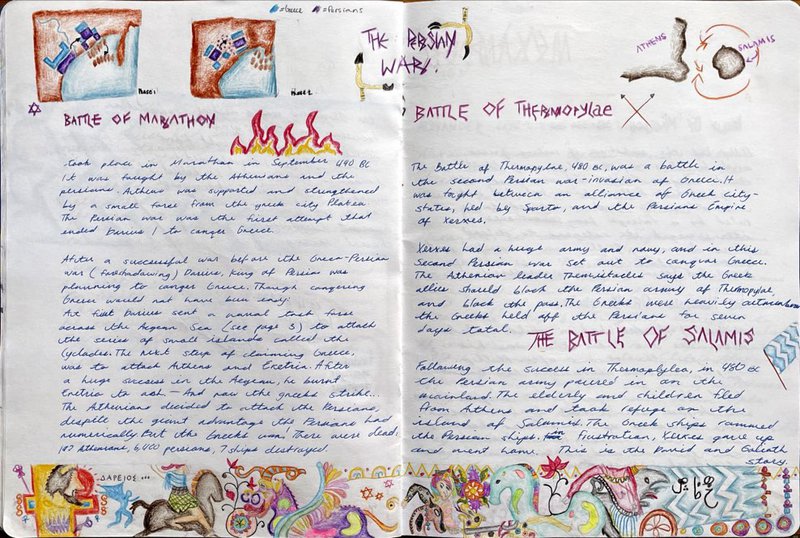 =Greece =Persians
PHASE 1
PHASE 2
THE PERSIAN
WARS.
ATHENS
SALAMIS
BATTLE OF MARATHON
took place in Marathon in September 490 BC
It was faught by the Atheunians and the
persians. Athens was supported and strengthened
by a small force from the greek city Platea.
The Persian war was the first attempt that
ended Darius 1 to conger Greece.
After a successful war before the Greco-Persian
war (foreshadowing) Darius, King of Persian was
planning to conger Greece. Though congering
Greece would not have been easy:
At first Darius sent a naval task force
across the Aegean Sea (see page 3) to attack
the series of small islands called the
Cyclades. The next step of claiming Greece,
was to attack Athens and Eretria. After
a huge success in the Aegean, he burnt
Eretria to ash — And now the greeks strike...
The Athenians decided to attack the Persians,
despite the giant advantage the Persians had
numerically. But the Greeks won. There were dead:
Athenians, 6,400 persians, 7 ships destroyed.
ΔΑΡΕΙΟΣ ...
BATTLE OF THERMOPYLAE
The Battle of Thermopylae, 480 BC, was a battle in
the second Persian war-invasion of Greece. It
was fought between an alliance of Greek city-
states, led by Sparta, and the Persians Empire
of Xerxes.
Xerxes had a huge army and navy, and in this
Second Persian war set out to conquar Greece.
The Athenian leader Themistacles says the Greek
allies should block the Persian army of Thermopylae,
and block the pass. The Greeks were heavily
the Greeks held off the Persians for seven
days total.
THE BATTLE OF SALAMIS
Following the success in Thermoplylea, in 480 BC
the Persian army poured in on the
mainland. The elderly and children fled
from Athens and took refuge on the
island of Salamis. The Greek ships rammed
the Persian ships. In frustration, Xerxes gave up
and went home. This is the David and Goliath
story.